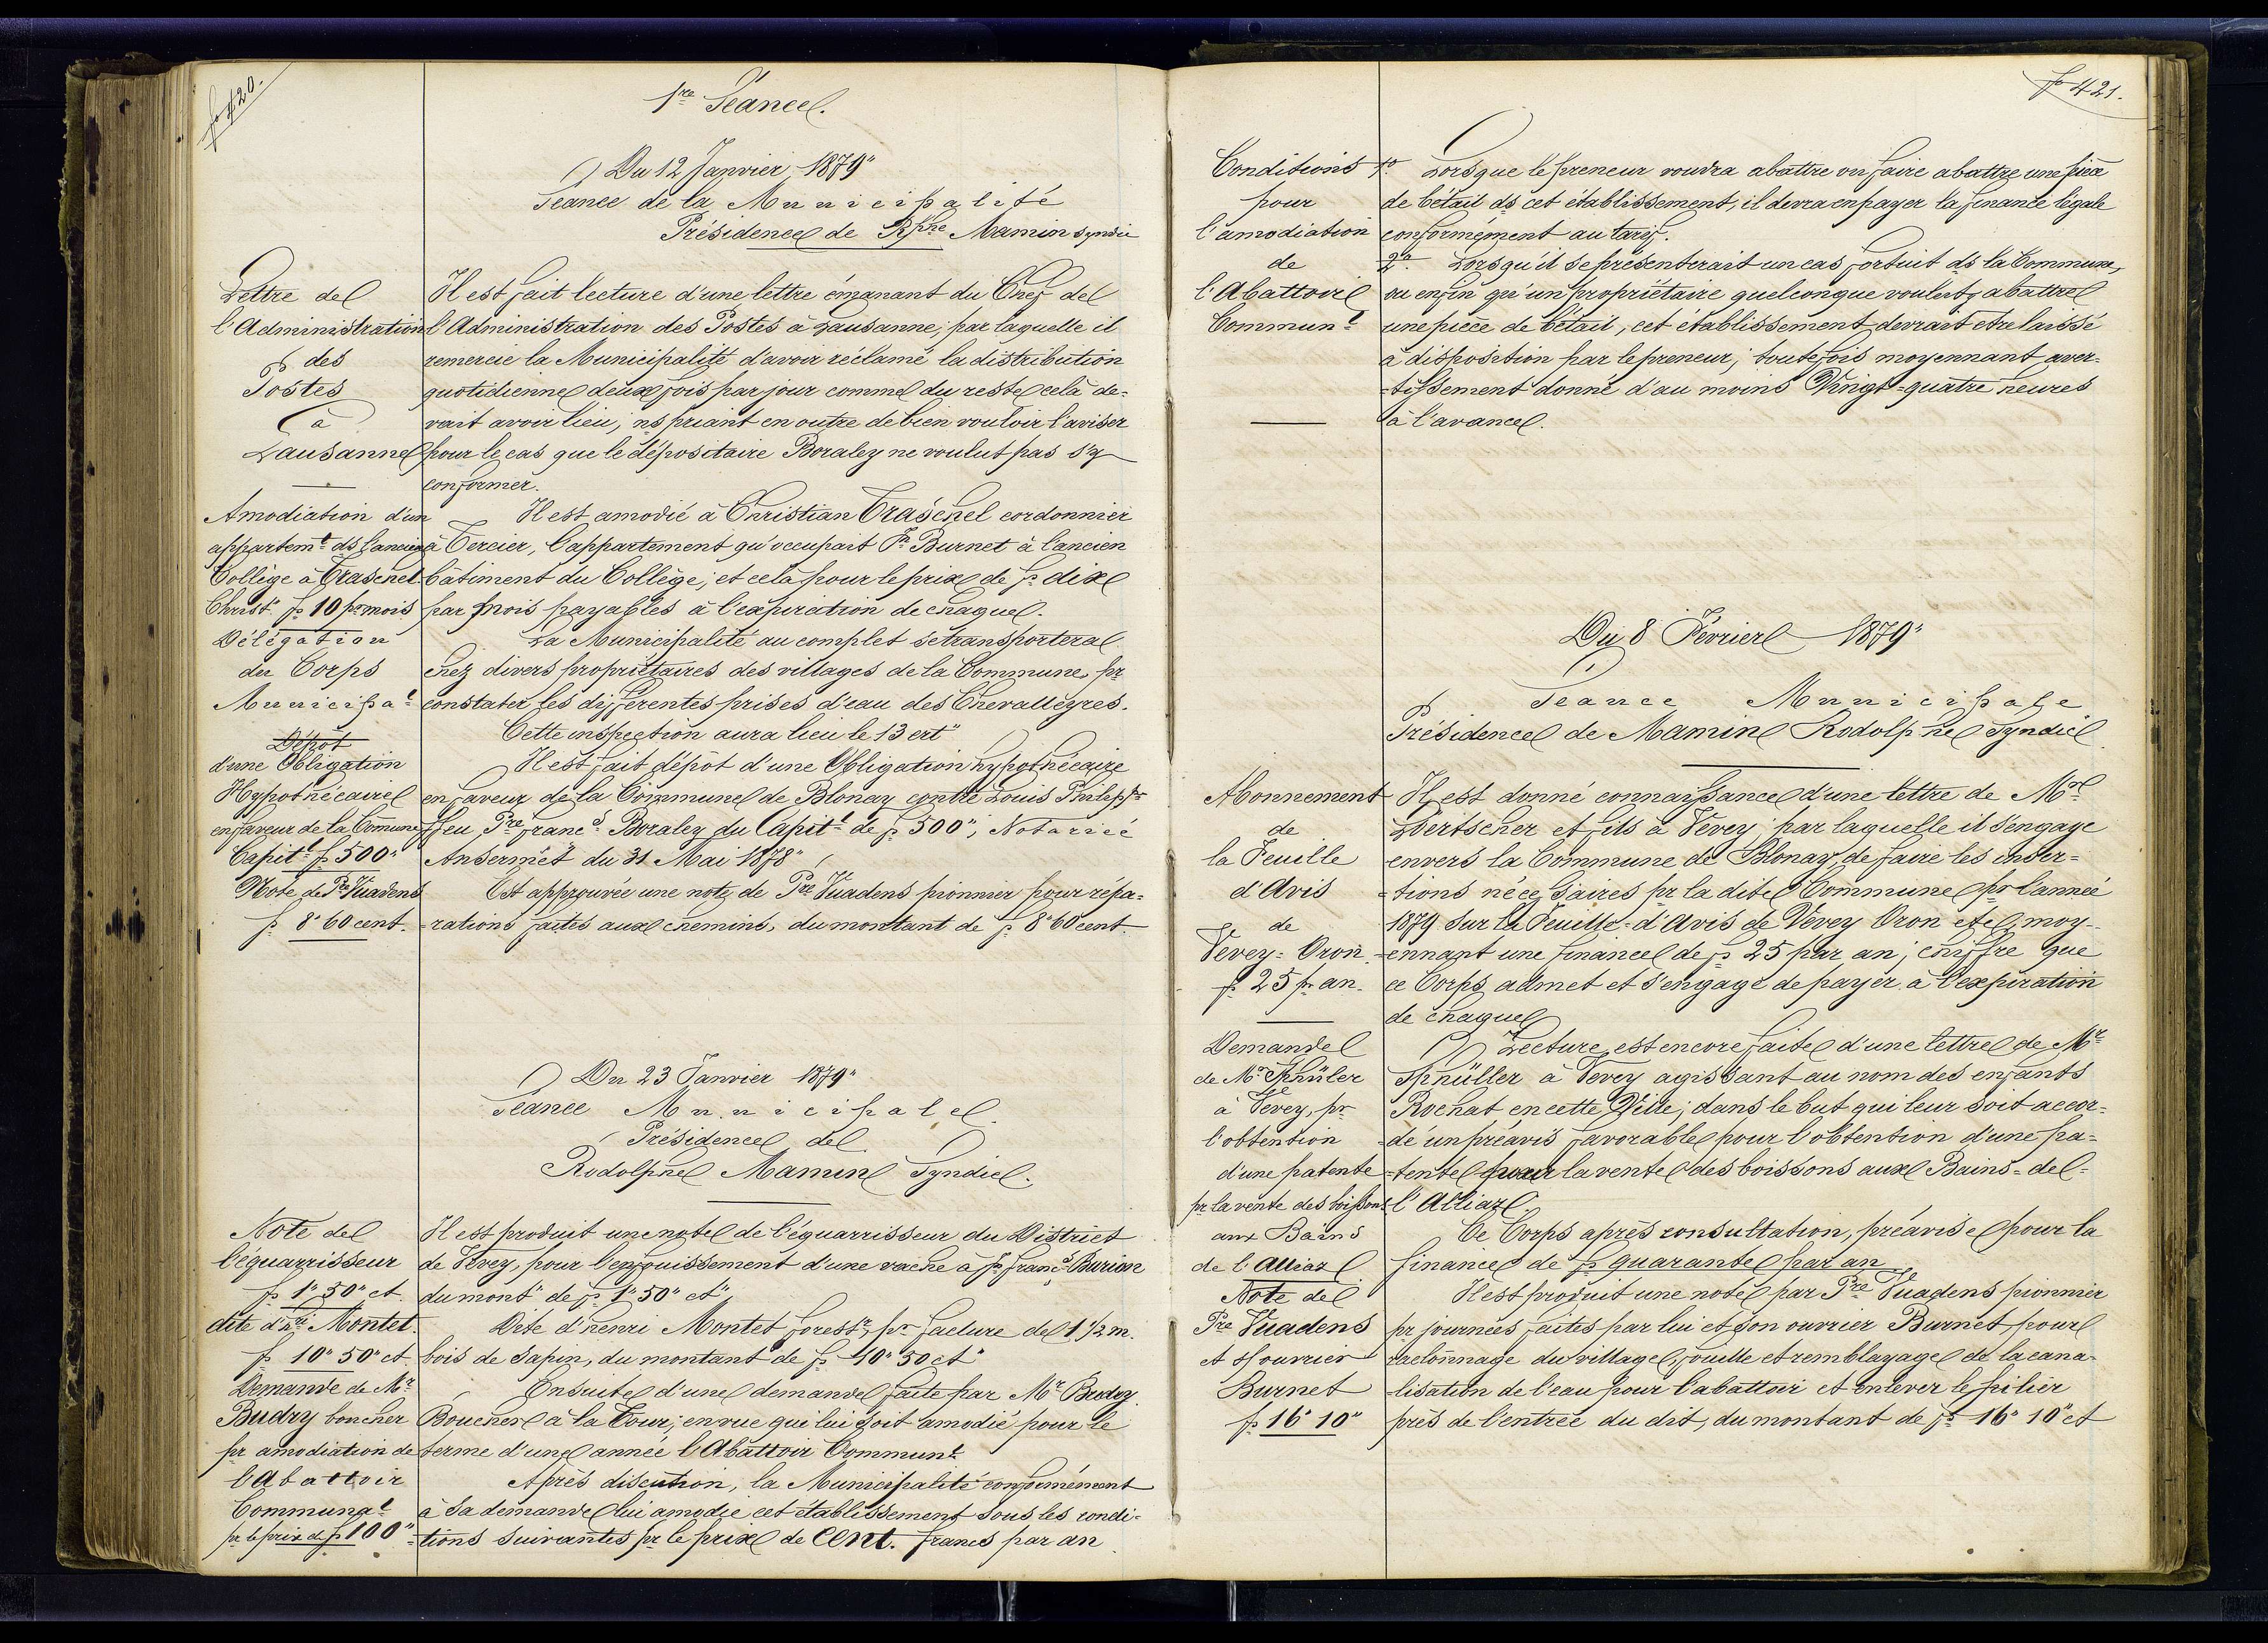 fo 420.
1re Séance.
Du 12 Janvier 1879"
Séance de la Municipalité
Présidence de Rphe Mamin syndic
Lettre de
l'Administration
des
Postes
à
Lausanne
Il est fait lecture d'une lettre émanant du Chef de
l'Administration des Postes à Lausanne; par laquelle il
remercie la Municipalité d'avoir réclamé la distribution
quotidienne deux fois par jour comme du reste celà de-
vait avoir lieu, ns priant en outre de bien vouloir l'aviser
pour le cas que le dépositaire Boraley ne voulut pas s'y
conformer.
Amodiation d'un
appartemt ds l'ancien
Collège à Traschel
Christn fs 10 pr mois
Il est amodié à Christian Traschel cordonnier
à Tercier, l'appartement qu'occupait Jn Burnet à l'ancien
bâtiment du Collège; et celà pour le prix de fs dix
par mois payables à l'expiration de chaque.
Délégation
du Corps
Municipal
La Municipalité au complet se transportera
chez divers propriétaires des villages de la Commune, pr
constater les différentes prises d'eau des Chevalleyres.
Cette inspection aura lieu le 13 crt"
Dépôt
d'une Obligation
Hypothécaire
en faveur de la Comune
Capitl fs 500"
Il est fait dépôt d'une Obligation hypothécaire
en faveur de la Commune de Blonay contre Louis Philippe
ffeu Pre Francs Boraley du Capitl de fs 500", Notariée
Ansermet du 31 Mai 1878"
Note de Pre Vuadens
fs 8" 60 cent.
Est approuvée une note de Pre Vuadens pionnier pour répa-
-rations faites aux chemins, du montant de fs 8" 60 cent.
Du 23 Janvier 1879"
Séance Municipale
Présidence de
Rodolphe Mamin Syndic.
Note de
l'équarrisseur
fs 1" 50" ct.
Il est produit une note de l'équarrisseur du District
de Vevey, pour l'enfouissement d'une vache à Jn Francs Burion
du mont" de fs 1" 50" ct"
dite d'Hri Montet.
fs 10" 50" ct.
Dite d'henri Montet forestr, pr facture de 1 1/2 m.
bois de sapin, du montant de fs 10" 50 ct"
Demande de Mr
Budry boucher
pr amodiation de
l'Abattoir
Communal
pr le prix de fs 100"
Ensuite d'une demande faite par Mr Budry
Boucher à la Tour; en vue qui lui soit amodié pour le
terme d'une année l'Abattoir Communl
Après discution, la Municipalité conformément
à sa demande lui amodie cet établissement sous les condi-
-tions suivantes pr le prix de Cent. francs par an
fo 421.
Conditions
pour
l'amodiation
de
l'Abattoir
Communl
1o Lorsque le preneur voudra abattre ou faire abattre une pièce
de bétail ds cet établissement, il devra en payer la finance légale
conformément au tarif.
2o. Lorsqu'il se présenterait un cas fortuit ds la Commune,
ou enfin qu'un propriétaire quelconque voulut abattre
une pièce de bétail, cet établissement devrait etre laissé
à disposition par le preneur; toutefois moyennant aver-
-tissement donné d'au moins Vingt-quatre heures
à l'avance.
Du 8 Février 1879"
Séance Municipale
Présidence de Mamin Rodolphe Syndic
Abonnement
de
la Feuille
d'Avis
de
Vevey-Oron
fs 25 pr an.
Il est donné connaissance d'une lettre de Mr
Lœrtscher et fils à Vevey; par laquelle il s'engage
envers la Commune de Blonay, de faire les inser-
-tions nécessaires pr la dite Commune pr l'année
1879 sur la Feuille-d'Avis de Vevey Oron etc moy-
-ennant une finance de fs 25 par an; chiffre que
ce Corps admet et s'engage de payer à l'expiration
de chaque
Demande
de Mr Sphüler
à Vevey, pr
l'obtention
d'une patente
pr la vente des boissons
aux Bains
de l'Alliaz
Lecture est encore faite d'une lettre de Mr
Sphüller à Vevey agissant au nom des enfants
Rochat en cette Ville; dans le but qui leur soit accor-
-dé un préavis favorable pour l'obtention d'une pa-
-tente pour la vente des boissons aux Bains-de-
l'Alliaz.
Ce Corps après consultation, préavise pour la
finance de fs quarante par an
Note de
Pre Vuadens
et s/ouvrier
Burnet
fs 16" 10"
Il est produit une note par Pre Vuadens pionnier
pr journées faites par lui et son ouvrier Burnet pour
raclonnage du village, fouille et remblayage de la cana-
-lisation de l'eau pour l'abattoir et enlever le pilier
près de l'entrée du dit, du montant de fs 16" 10" ct